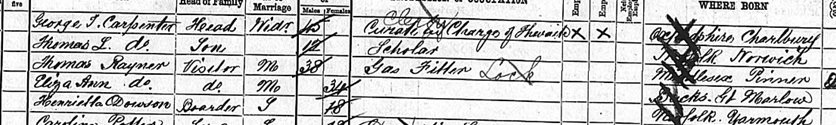 five Head of Family Marriage Males Females WHERE BORN
George T. Carpenter Head Widr. 45 Clergy Curate in Charge of X X Oxfordshire Charlbury
Thomas L. do. Son 12 Scholar Norfolk Norwich
Thomas Rayner Visitor M 38 Gas Fitter Lock Middlesex Pinner
Eliza Ann do. do. M 34 Bucks. Gt Marlow
Henrietta Dowson Boarder S 18 Norfolk Yarmouth
Caroline